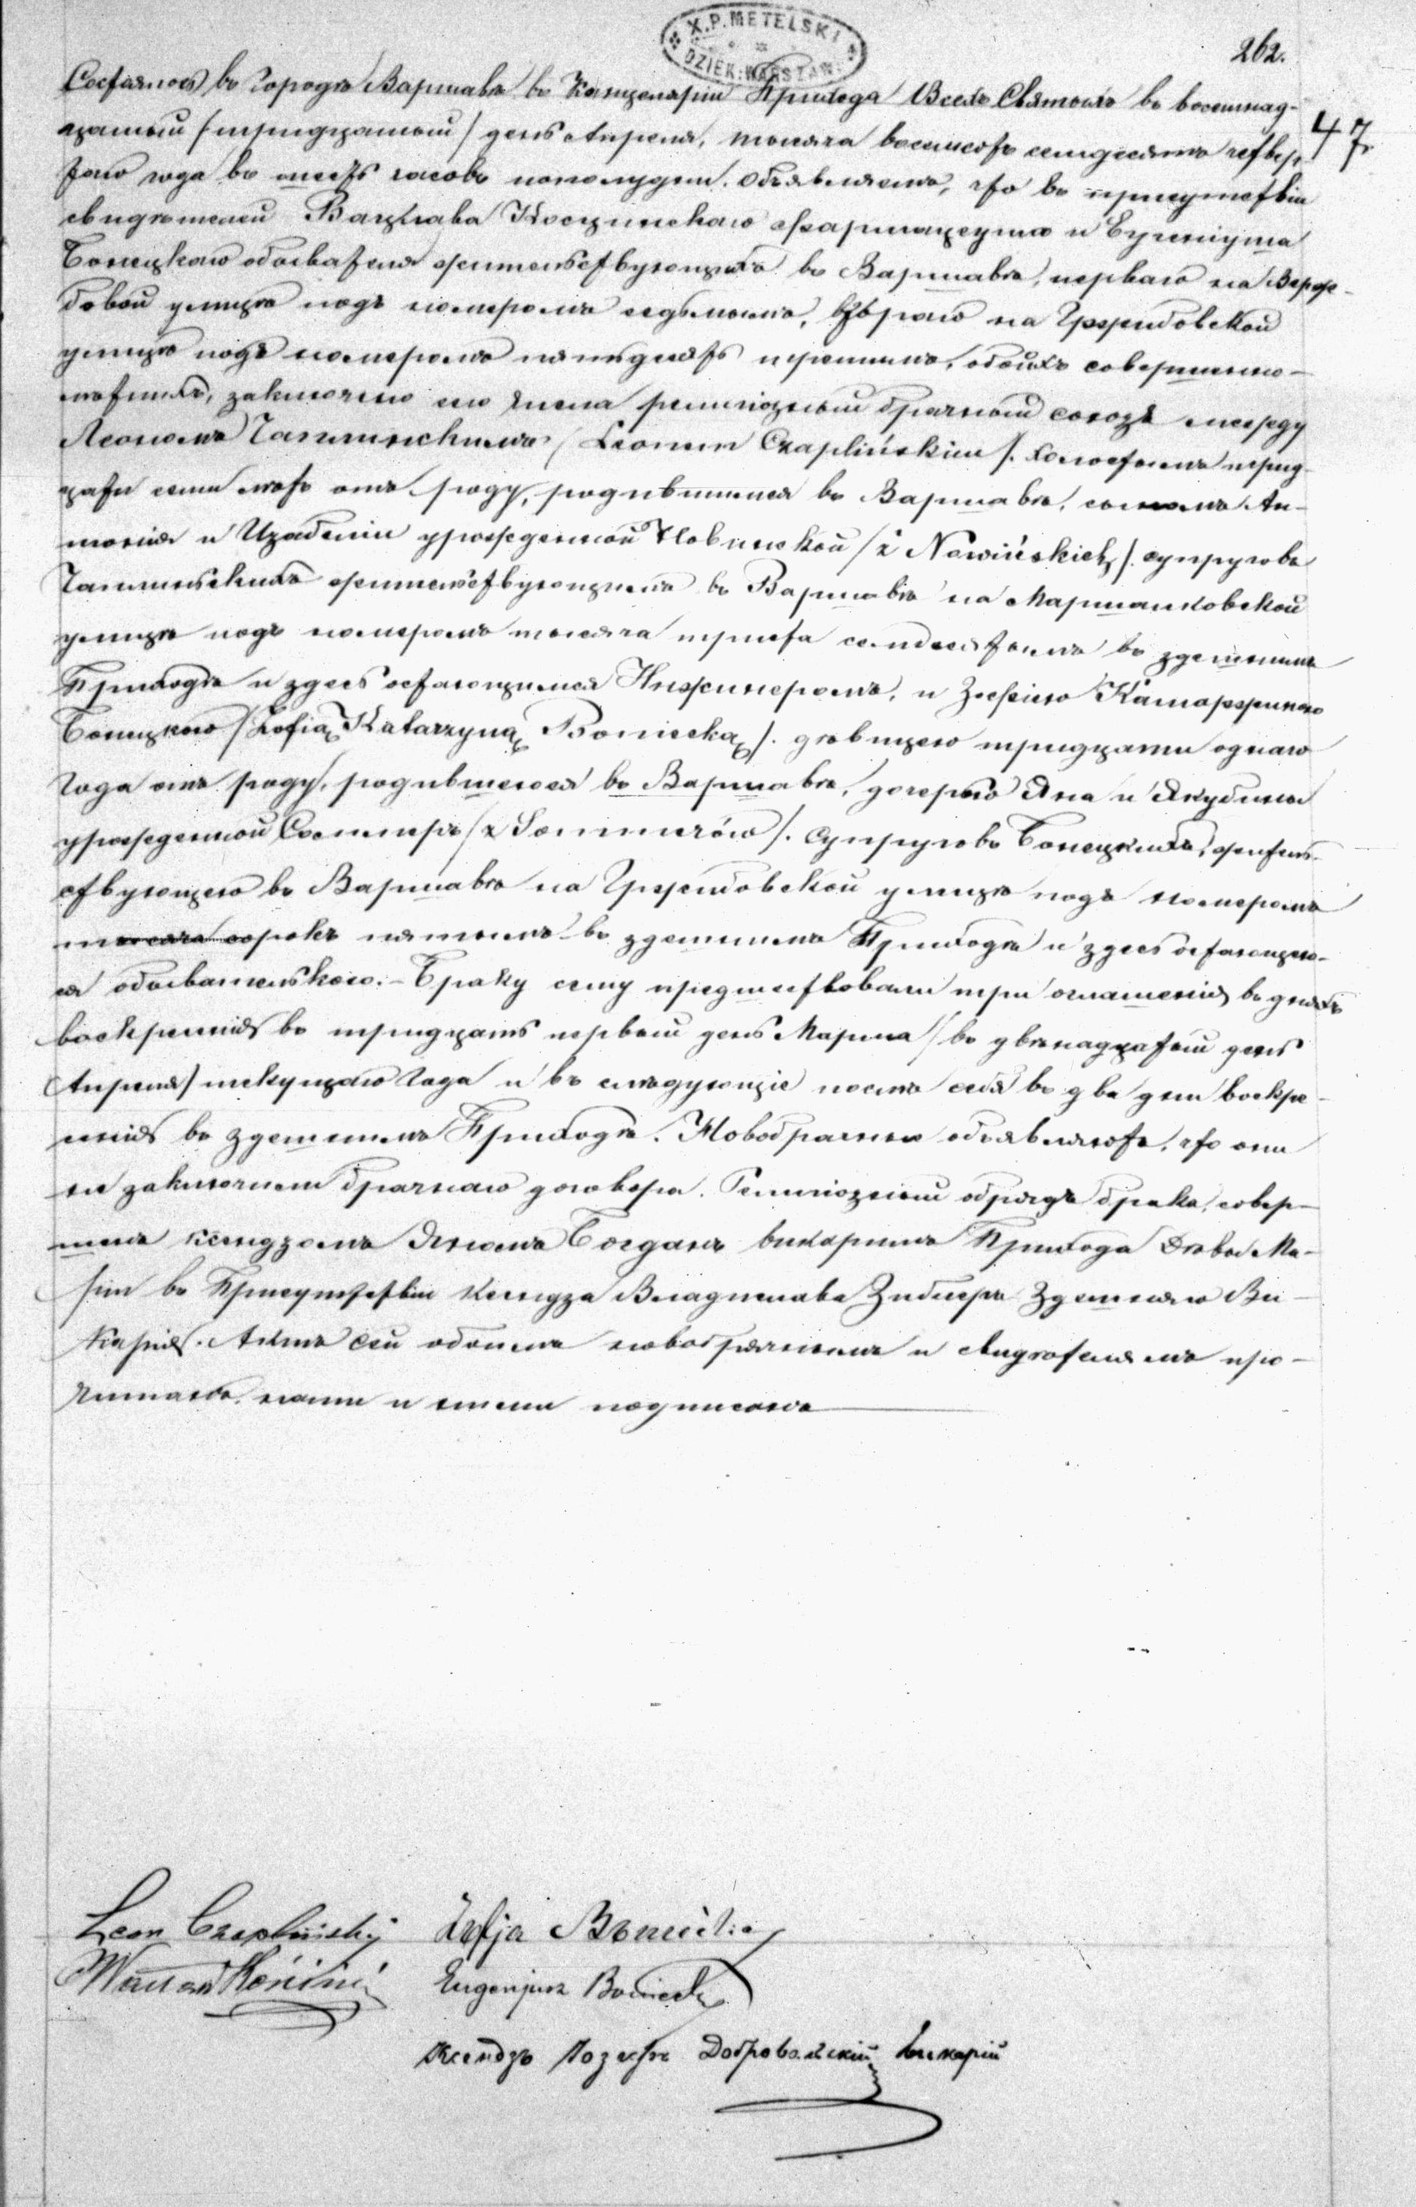 X.P. METELSKI
DZIEK: WARSZAW.
262.
47.
Состоялось въ городѣ Варшавѣ въ Канцеляріи Прихода Всехъ Святыхъ въ восемнад-
цатый /тридцатый/ день Апреля, тысяча восемсотъ семдесятъ четвер-
таго года въ шесть часовъ пополудни. Объявляемъ, что въ присутствіи
свидѣтелей Вацлава Косцинскаго фармацеута и Евгеніуша
Бонецкаго обывателя жительствующихъ въ Варшавѣ, перваго на Верж-
бовой улицѣ подъ номеромъ седьмымъ, втораго на Гржибовской
улицѣ подъ номеромъ пятьдесятъ третимъ, обоихъ совершенно-
лѣтнихъ, заключено сего числа религіозный брачный союзъ между
Леономъ Чаплинскимъ / Leonem Czaplińskim /. холостымъ трид-
цати семи лѣтъ отъ роду, родившимся въ Варшавѣ, сыномъ Ан-
тонія и Изабеллы урожденной Новинской / z Nowińskich /. супруговъ
Чаплинскихъ жительствующимъ въ Варшавѣ на Маршалковской
улицѣ подъ номеромъ тысяча триста семдесятымъ въ здешнимъ
Приходѣ и здесь остающимся Инжинеромъ, и Зофіею Катаржиною
Бонецкою / Zofią Katarzyną Boniecką /. дѣвицею тридцати одного
года отъ роду, родившеюся въ Варшавѣ, дочерью Яна и Якубины
урожденной Соммеръ / z Sommerów /. супруговъ Бонецкихъ, житель-
ствующею въ Варшавѣ на Гржибовской улицѣ подъ номеромъ
тысяча сорокъ пятымъ въ здешнимъ Приходѣ и здесь остающею-
ся обывательскою. - Браку сему предшествовали три оглашенія въ дняхъ
воскресенія въ тридцать первый день Марта / въ двѣнадцатый день
Апреля / текущаго года и въ следующіе после себя въ два дни воскре-
сенія въ здешнимъ Приходѣ. Новобрачные объявляютъ, что они
не заключили брачнаго договора. Религіозный обрядъ брака, совер-
шенъ ксендзомъ Яномъ Богданъ викаримъ Прихода Дѣвы Ма-
ріи въ Присутствіи Ксендза Владислава Зиберъ Здешняго Ви-
карія. Актъ сей обоимъ новобрачнымъ и свидѣтелямъ про-
читанъ, нами и ними подписанъ
Leon Czapliński Zofja Boniecka
Wacław Kosiński Eugenjusz Boniecki
Ксендзъ Іозефъ Добровольскій Викарій